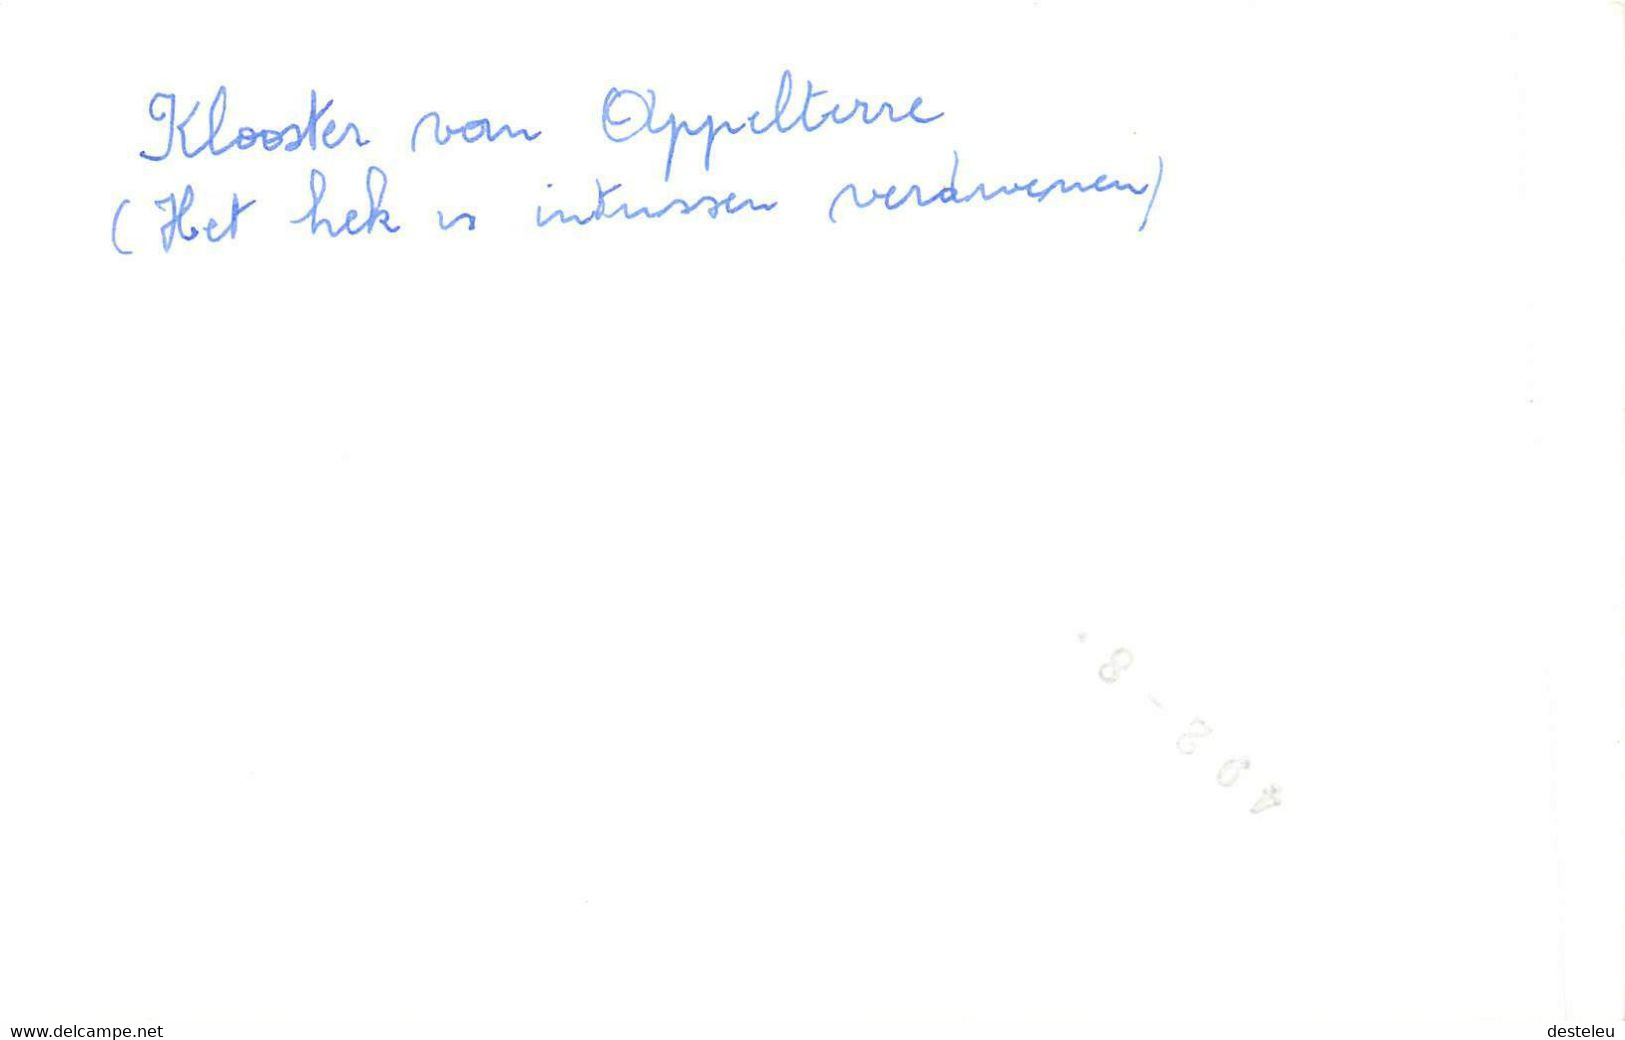 Klooster van Appelterre
(Het hek is intussen verdwenen)
www.delcampe.net
desteleu